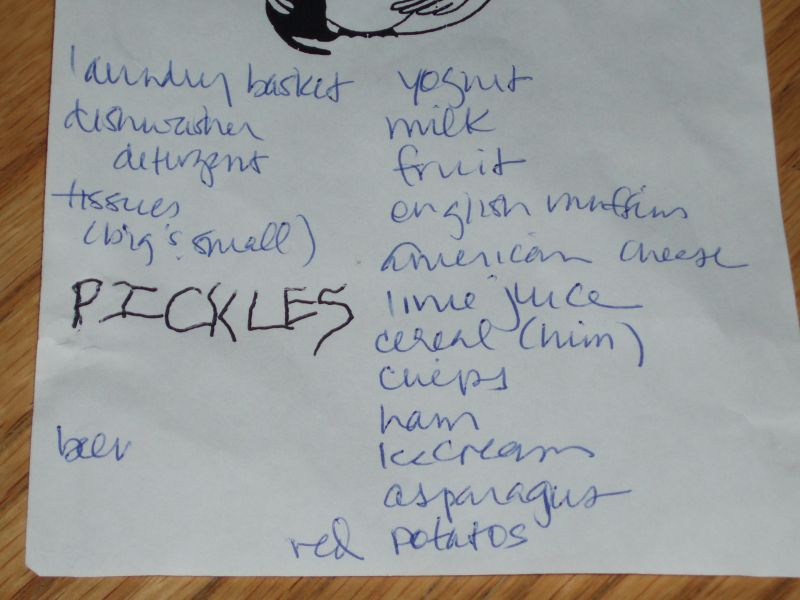 laundry basket
dishwasher
detergent
tissues
(big & small)
PICKLES
beer
yogurt
milk
fruit
english muffins
american cheese
lime juice
cereal (him)
chips
ham
icecream
asparagus
red potatos